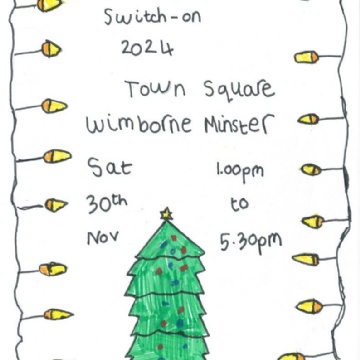 Switch-on
2024
Town Square
Wimborne Minster
Sat 1.00pm
30th to
Nov 5.30pm